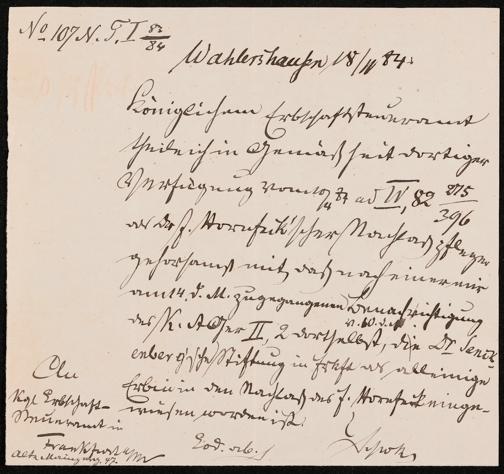 No 107 N. T. I 83/84
Wahlershausen, 18/11 84.
Königlichem Erbschaftsteueramt
theile ich in Gemäßheit dortiger
Verfügung vom ad IV, 82 /396
als Dr. J. Hornfeck'scher Nachlaßpfleger
gehorsamst mit, daß nach einer mir
am 14. d. M. zugegangenen Benachrichtigung
des K. A Ger II, 2 dortselbst, die Dr Senck
enberg'sche Stiftung in Frkft als alleinige
Erbin in den Nachlaß des J. Hornfeck einge-
wiesen worden ist.
An
Kgl. Erbschaft-
Steueramt in
Frankfurt a/M
Alte Mainzerg. 47.